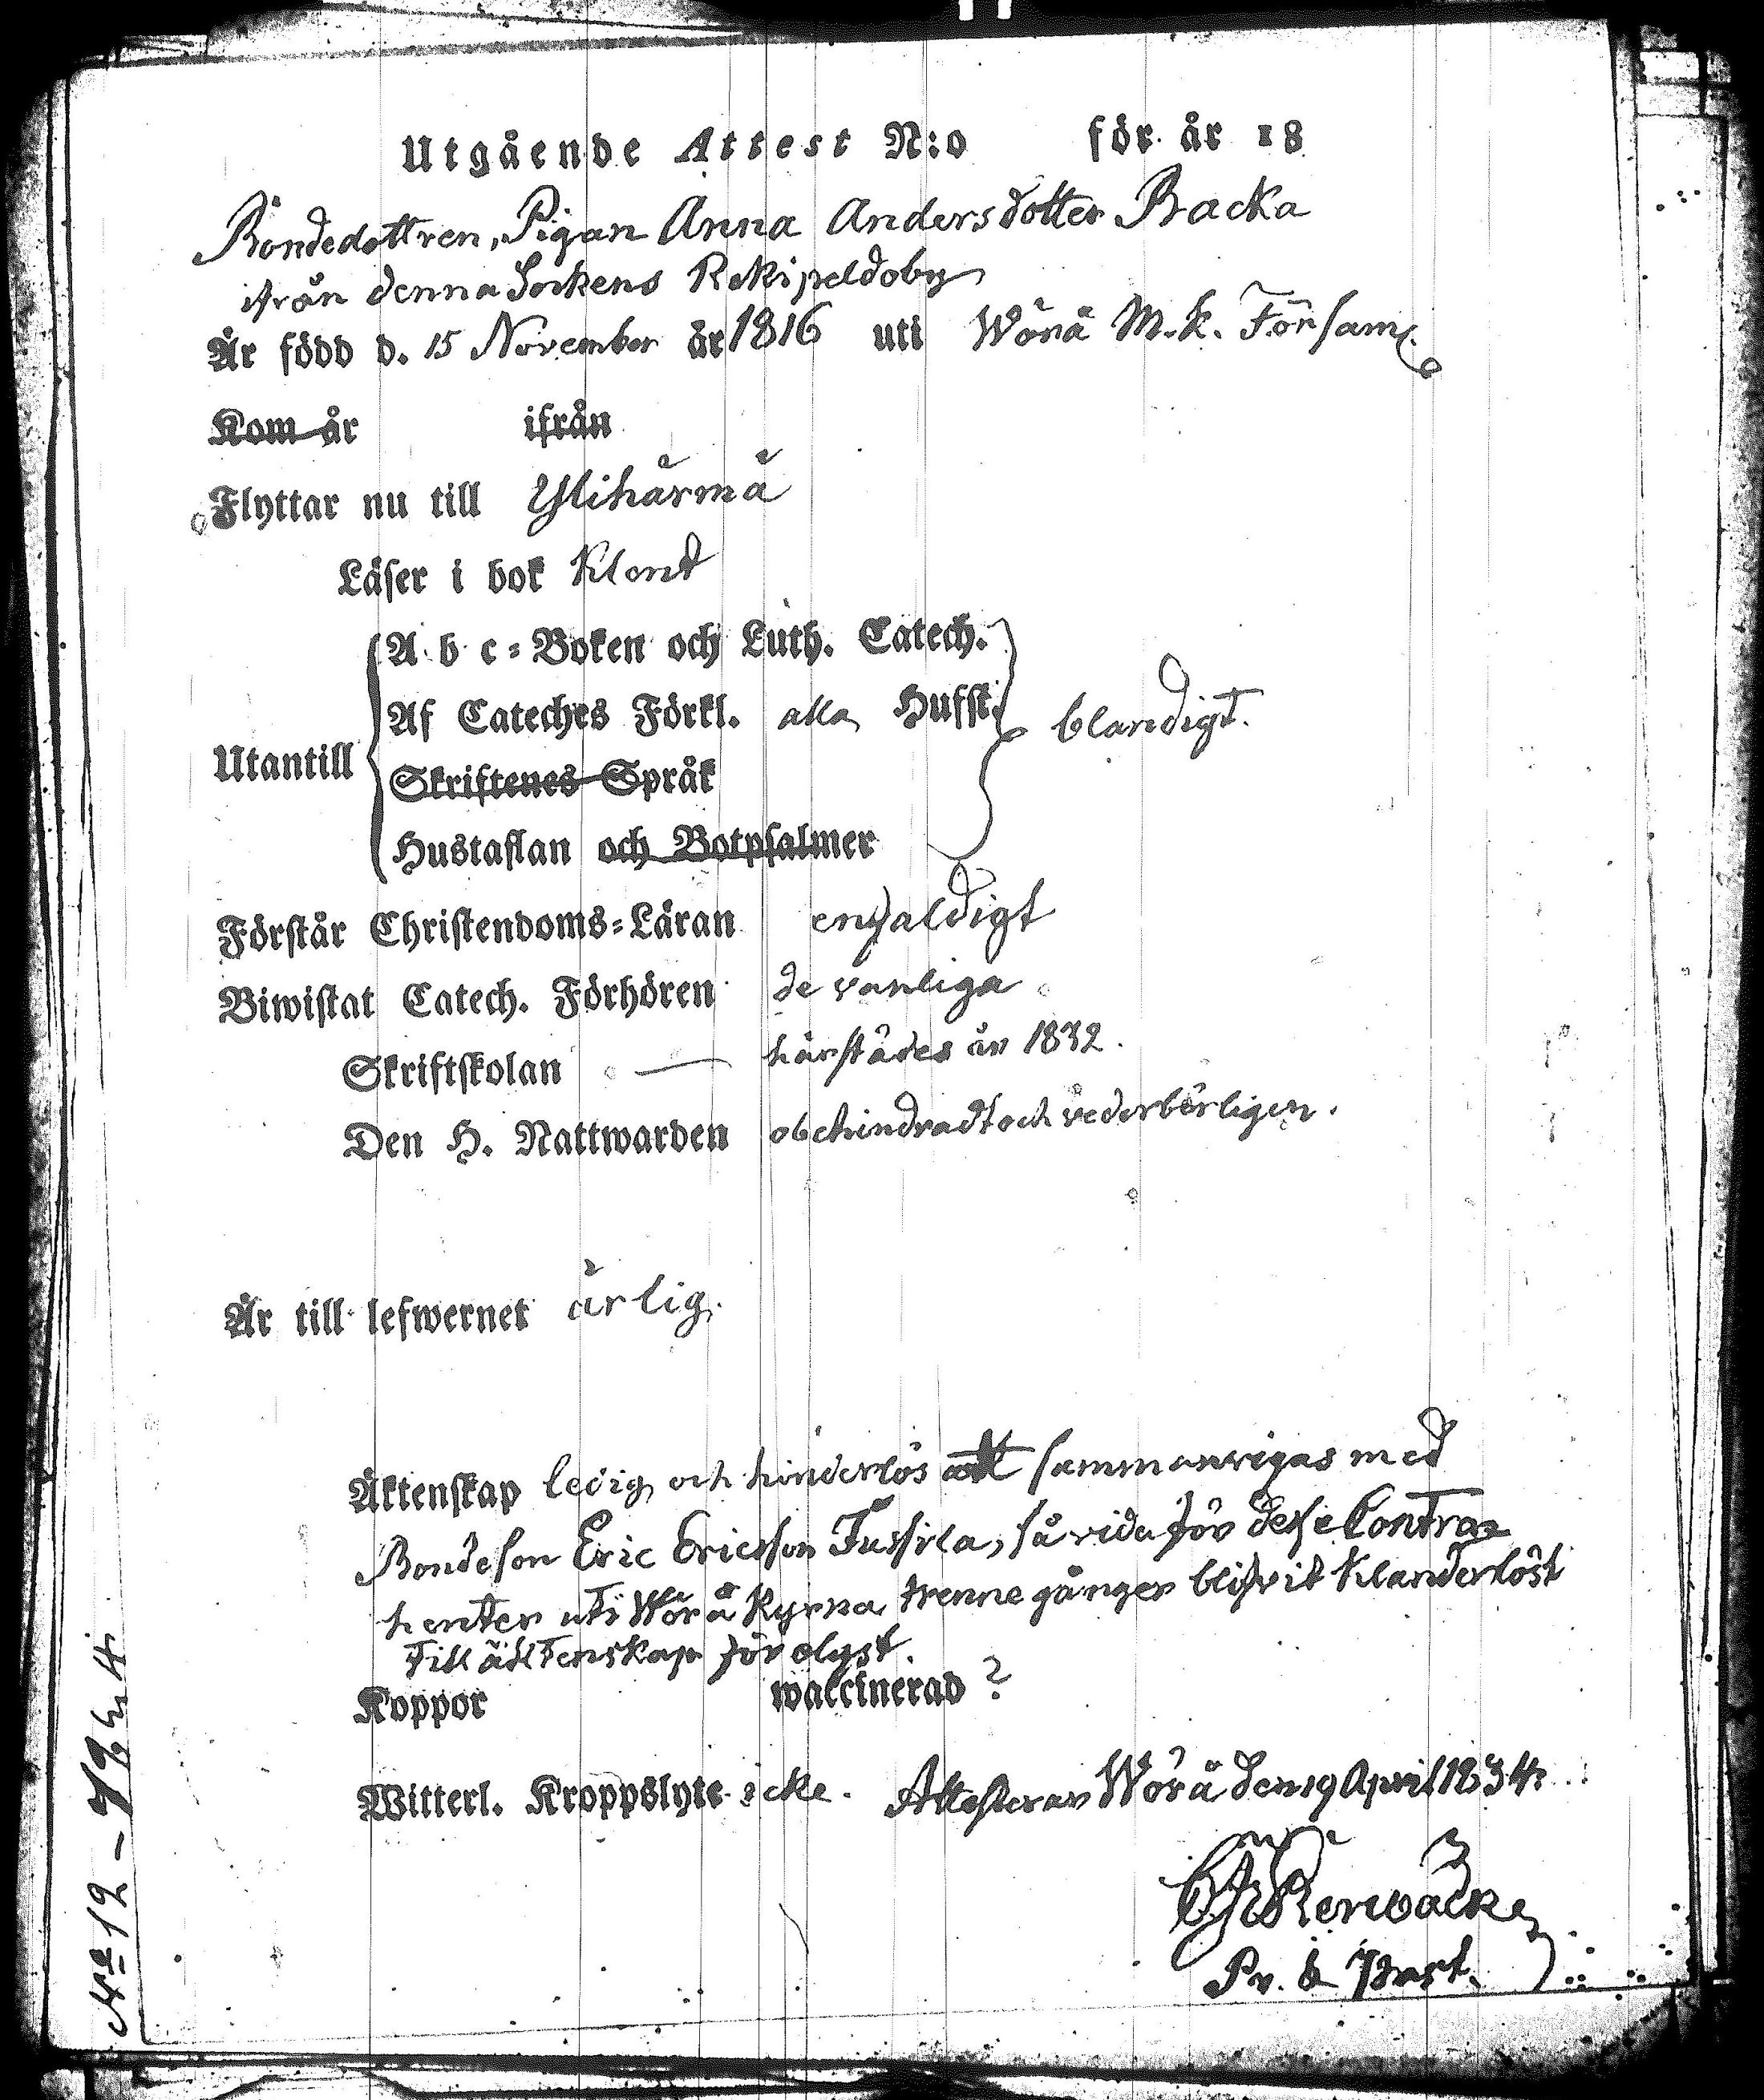 Utgående Attest N:o för år 18
Bondedottren, Pigan Anna Andersdotter Backa
ifrån denna Sockens Rekipeldoby
Är född d. 15 November år 1816 uti Wörå M.k. Församl.
Kom år ifrån
Flyttar nu till Ylihärmä
Läser i bok klent
A b c-Boken och Luth. Catech.
Af Cateches Förkl. alla Hufst. blandigt.
Utantill
Skriftenes Språk
Hustaflan och Botpsalmer
Förstår Christendoms-Läran enfaldigt
Biwistat Catech. Förhören de vanliga
Skriftskolan — härstädes år 1832.
Den H. Nattwarden obehindradt och vederbörligen.
Är till lefwernet ärlig.
Äktenskap ledig och hinderlös att sammanvigas med
Bondeson Eric Ericsson Tussila, så vida för desse Contra-
henter uti Wörå Kyrka trenne gånger blifvit klanderlöst
till äktenskap för olyst.
Koppor waccinerad?
Witterl. Kroppslyte icke. Attesterar Wörå den 19 April 1834.
Pr. & Past.
Nro 12 –